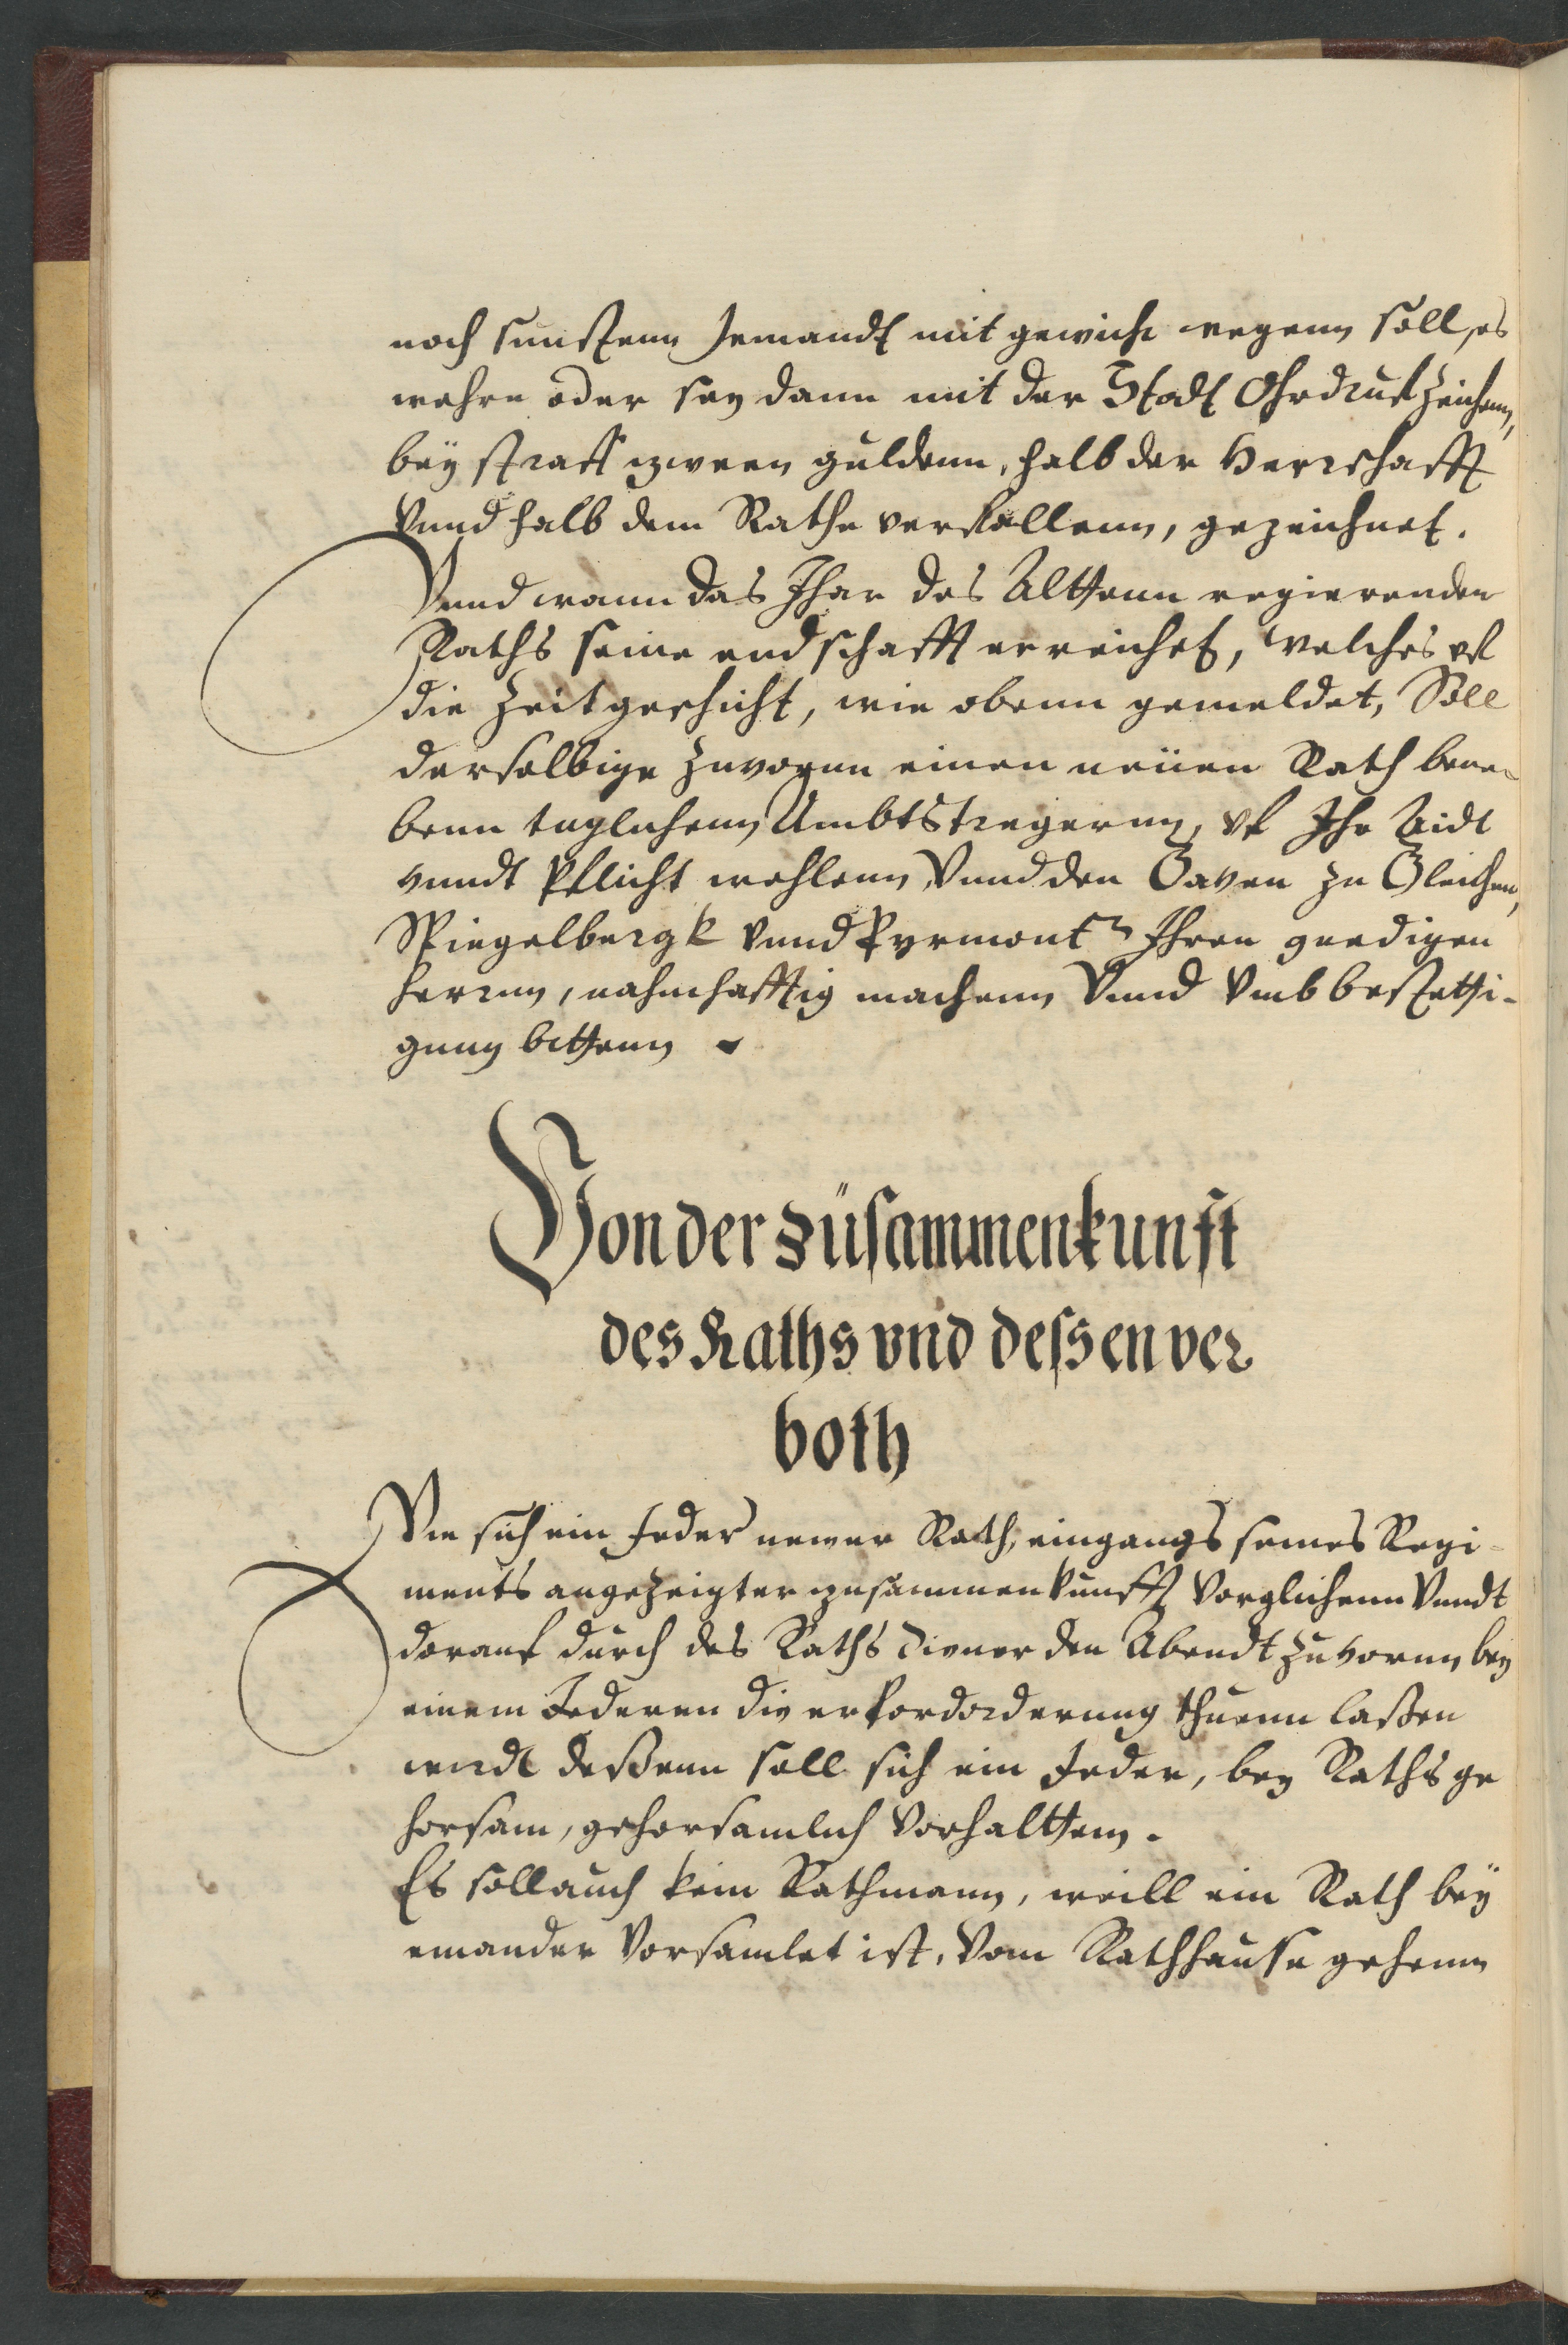 noch sunstenn Jemandt mit gewicht wegenn soll, es
wehre oder sey dann mit der Stadt Ohrdruf zeichenn,
bey straff zween guldenn, halb der Herrschafft
Vnnd halb dem Rathe verfallenn, gezeichnet.
Vnnd wann das Jhar des Alttenn regierenden
Raths seine endschafft erreichet, welches vf
die Zeit geschicht, wie obenn gemeldet, Soll
derselbige zuvornn einen neüen Rath bene-
benn tuglichenn Ambtstregernn, vf Jhr Aidt
vnndt Pflicht wehlenn Vnnd den Graven zu Gleichen,
Spiegelbergk vnnd Pyrmont Jhren gnedigen
herrnn, nahmhafftig machenn Vnnd Vmb bestetti-
gung bittenn
Von der züsammenkunft
des Raths vnd dessen ver
both
Wie sich ein Jeder newer Rath, eingangs seines Regi-
ments angezeigter zusammenkunfft Vorglichenn Vnndt
darauf durch des Raths diener den Abendt zuvornn bey
einem Jederen die erfordorderung thuenn laßen
wirdt deßenn soll sich ein Jeder, bey Raths ge
horsam, gehorsamlich Vorhalttenn.
Es soll auch kein Rathmann, weill ein Rath bey
einander Vorsamlet ist, Vom Rathhause gehenn